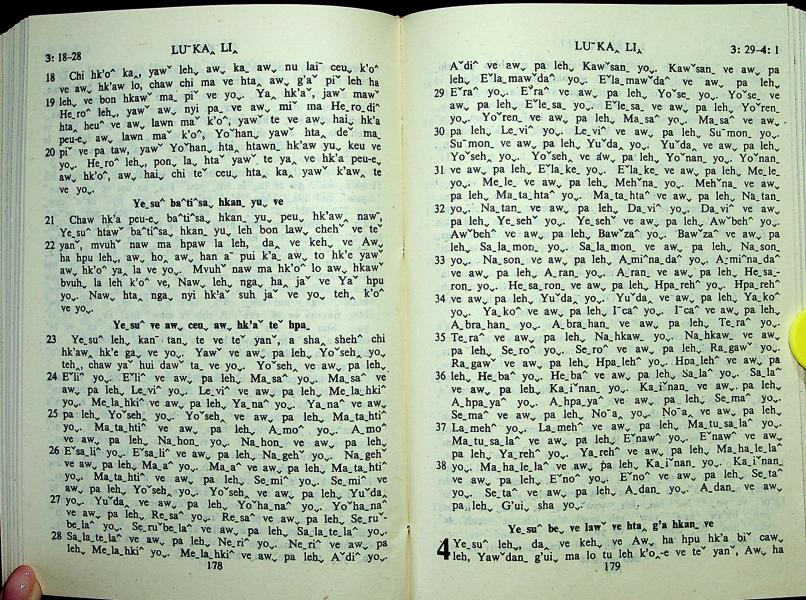 3: 18-28
LUˉKA‸ LI‸
18 Chi hk'o^ ka‸, yawˇ leh⌄ aw⌄ ka⌄ aw⌄ nu laiˉ ceu⌄ k'o^
ve aw⌄ hk'aw lo, chaw chi ma ve hta‸ aw⌄ g'aˇ piˇ leh ha
19 leh⌄ ve bon hkawˇ ma⌄ piˇ ve yo⌄. Ya‸ hk'aˇ, jawˇ mawˇ
He_ro^ leh⌄, yawˇ aw⌄ nyi pa⌄ ve aw⌄ miˇ ma He_ro_di^
hta‸ heu^ ve aw⌄ lawn maˇ k'o^, yawˇ te ve aw⌄ hai⌄ hk'a
peu-e⌄ aw⌄ lawn maˇ k'o^, Yoˇhan⌄ yawˇ hta‸ deˇ ma⌄
20 piˇ ve pa taw, yawˇ Yoˇhan⌄ hta‸ htawn⌄ hk'aw yu⌄ keu ve
yo⌄. He_ro^ leh⌄, pon⌄ la⌄ htaˇ yawˇ te ya‸ ve hk'a peu-e⌄
aw⌄ hk'o^, aw⌄ hai⌄ chi teˇ ceu⌄ hta‸ ka‸ yawˇ k'aw‸ te
ve yo⌄.
Ye_su^ baˇti^sa⌄ hkan_ yu⌄ ve
21 Chaw hk'a peu-e⌄ baˇti^sa⌄ hkan_ yu⌄ peu⌄ hk'aw⌄ nawˇ,
Ye_su^ htawˇ baˇti^sa⌄ hkan_ yu⌄ leh bon law⌄ chehˇ ve teˇ
22 yanˇ, mvuhˇ naw ma hpaw la leh, da⌄ ve keh⌄ ve Aw⌄
ha hpu leh⌄, aw⌄ ho‸ aw⌄ han aˉ pui^ k'a‸ aw⌄ to hk'e yawˇ
aw⌄ hk'o^ ya⌄ la ve yo⌄. Mvuhˇ naw ma hk'oˇ lo aw⌄ hkawˇ
bvuh⌄ la leh k'o^ ve, Naw⌄ leh⌄ nga⌄ ha‸ jaˇ ve Yaˇ hpu
yo⌄. Naw⌄ hta‸ nga⌄ nyi hk'aˇ suh⌄ jaˇ ve yo⌄ teh⌄ k'o^
ve yo⌄.
Ye_su^ ve aw⌄ ceu⌄ aw⌄ hk'aˇ teˇ hpa_
23 Ye_su^ leh⌄ kanˉ tan_ te ve teˇ yanˇ, a sha‸ shehˇ chi
hk'aw‸ hk'e ga⌄ ve yo⌄. Yawˇ ve aw⌄ pa leh⌄ Yoˇseh⌄ yo⌄
teh⌄ chaw yaˇ hui dawˇ ta⌄ ve yo⌄. Yoˇseh⌄ ve aw⌄ pa leh⌄
24 Eˇli^ yo⌄. Eˇli^ ve aw⌄ pa leh⌄ Ma_sa^ yo⌄. Ma_sa^ ve
aw⌄ pa leh⌄ Le_vi^ yo⌄. Le_vi^ ve aw⌄ pa leh⌄ Me_la_hki^
yo⌄. Me_la_hki^ ve aw⌄ pa leh⌄ Ya_na^ yo⌄. Ya_na^ ve aw⌄
25 pa leh⌄ Yoˇseh⌄ yo⌄. Yoˇseh⌄ ve aw⌄ pa leh⌄ Ma_ta_hti^
yo⌄. Ma_ta_hti^ ve aw⌄ pa leh⌄ A_mo^ yo⌄. A_mo^
ve aw⌄ pa leh⌄ Na_hon_ yo⌄. Na_hon_ ve aw⌄ pa leh⌄
26 Eˇsa_li^ yo⌄. Eˇsa_li^ ve aw⌄ pa leh⌄ Na_gehˇ yo⌄. Na_gehˇ
ve aw⌄ pa leh⌄ Ma_a^ yo⌄. Ma_a^ ve aw⌄ pa leh⌄ Ma_ta_hti^
yo⌄. Ma_ta_hti^ ve aw⌄ pa leh⌄ Se_mi^ yo⌄. Se_mi^ ve
aw⌄ pa leh⌄ Yoˇseh⌄ yo⌄. Yoˇseh⌄ ve aw⌄ pa leh⌄ Yuˇda⌄
27 yo⌄. Yuˇda⌄ ve aw⌄ pa leh⌄ Yoˇha_na^ yo⌄. Yoˇha_na^
ve aw⌄ pa leh⌄ Re_sa^ yo⌄. Re_sa^ ve aw⌄ pa leh⌄ Se_ruˇ-
be_la^ yo⌄. Se_ruˇbe_la^ ve aw⌄ pa leh⌄ Sa_la_te_la^ yo⌄.
28 Sa_la_te_la^ ve aw⌄ pa leh⌄ Ne_ri^ yo⌄. Ne_ri^ ve aw⌄ pa
leh⌄ Me_la_hki^ yo⌄. Me_la_hki^ ve aw⌄ pa leh⌄ Aˇdi^ yo⌄.
178
LUˉKA‸ LI‸
3: 29-4: 1
Aˇdi^ ve aw⌄ pa leh⌄ Kawˇsan_ yo⌄. Kawˇsan_ ve aw⌄ pa
leh⌄ Eˇla_mawˇda^ yo⌄. Eˇla_mawˇda^ ve aw⌄ pa leh⌄
29 Eˇra^ yo⌄. Eˇra^ ve aw⌄ pa leh⌄ Yoˇse⌄ yo⌄. Yoˇse⌄ ve
aw⌄ pa leh⌄ Eˇle_sa_ yo⌄. Eˇle_sa_ ve aw⌄ pa leh⌄ Yoˇren_
yo⌄. Yoˇren_ ve aw⌄ pa leh⌄ Ma_sa^ yo⌄. Ma_sa^ ve aw⌄
30 pa leh⌄ Le_vi^ yo⌄. Le_vi^ ve aw⌄ pa leh⌄ Suˉmon_ yo⌄.
Suˉmon_ ve aw⌄ pa leh⌄ Yuˇda⌄ yo⌄. Yuˇda⌄ ve aw⌄ pa leh⌄
Yoˇseh⌄ yo⌄. Yoˇseh⌄ ve aw⌄ pa leh⌄ Yoˇnan_ yo⌄. Yoˇnan_
31 ve aw⌄ pa leh⌄ Eˇla_ke_ yo⌄. Eˇla_ke_ ve aw⌄ pa leh⌄ Me_le_
yo⌄. Me_le_ ve aw⌄ pa leh⌄ Mehˇna⌄ yo⌄. Mehˇna⌄ ve aw⌄
pa leh⌄ Ma_ta_hta^ yo⌄. Ma_ta_hta^ ve aw⌄ pa leh⌄ Na_tan_
32 yo⌄. Na_tan_ ve aw⌄ pa leh⌄ Da_vi^ yo⌄. Da_vi^ ve aw⌄
pa leh⌄ Ye_sehˇ yo⌄. Ye_sehˇ ve aw⌄ pa leh⌄ Awˇbeh^ yo⌄.
Awˇbeh^ ve aw⌄ pa leh⌄ Bawˇza^ yo⌄. Bawˇza^ ve aw⌄ pa
leh⌄ Sa_la_mon_ yo⌄. Sa_la_mon_ ve aw⌄ pa leh⌄ Na_son_
33 yo⌄. Na_son_ ve aw⌄ pa leh⌄ A_mi^na_da^ yo⌄. A_mi^na_da^
ve aw⌄ pa leh⌄ A_ran_ yo⌄. A_ran_ ve aw⌄ pa leh⌄ He_sa_-
ron_ yo⌄. He_sa_ron_ ve aw⌄ pa leh⌄ Hpa_reh^ yo⌄. Hpa_reh^
34 ve aw⌄ pa leh⌄ Yuˇda⌄ yo⌄. Yuˇda⌄ ve aw⌄ pa leh⌄ Ya_ko^
yo⌄. Ya_ko^ ve aw⌄ pa leh⌄ Iˉca^ yo⌄. Iˉca^ ve aw⌄ pa leh⌄
A_bra_han_ yo⌄. A_bra_han_ ve aw⌄ pa leh⌄ Te_ra^ yo⌄.
35 Te_ra^ ve aw⌄ pa leh⌄ Na_hkaw⌄ yo⌄. Na_hkaw⌄ ve aw⌄
pa leh⌄ Se_ro^ yo⌄. Se_ro^ ve aw⌄ pa leh⌄ Ra_gawˇ yo⌄.
Ra_gawˇ ve aw⌄ pa leh⌄ Hpa_leh^ yo⌄. Hpa_leh^ ve aw⌄ pa
36 leh⌄ He_ba^ yo⌄. He_ba^ ve aw⌄ pa leh⌄ Sa_la^ yo⌄. Sa_la^
ve aw⌄ pa leh⌄ Ka_iˇnan_ yo⌄. Ka_iˇnan_ ve aw⌄ pa leh⌄
A_hpa_ya^ yo⌄. A_hpa_ya^ ve aw⌄ pa leh⌄ Se_ma^ yo⌄.
Se_ma^ ve aw⌄ pa leh⌄ Noˉa‸ yo⌄. Noˉa‸ ve aw⌄ pa leh⌄
37 La_meh^ yo⌄. La_meh^ ve aw⌄ pa leh⌄ Ma_tu_sa_la^ yo⌄.
Ma_tu_sa_la^ ve aw⌄ pa leh⌄ Eˇnawˇ yo⌄. Eˇnawˇ ve aw⌄
pa leh⌄ Ya_reh^ yo⌄. Ya_reh^ ve aw⌄ pa leh⌄ Ma_ha_le_la^
38 yo⌄. Ma_ha_le_la^ ve aw⌄ pa leh⌄ Ka_iˇnan_ yo⌄. Ka_iˇnan_
ve aw⌄ pa leh⌄ Eˇno^ yo⌄. Eˇno^ ve aw⌄ pa leh⌄ Se_ta^
yo⌄. Se_ta^ ve aw⌄ pa leh⌄ A_dan_ yo⌄. A_dan_ ve aw⌄
pa leh⌄ G'ui⌄ sha yo⌄.
Ye_su^ be⌄ ve lawˇ ve hta‸ g'a hkan_ ve
4 Ye_su^ leh⌄, da⌄ ve keh⌄ ve Aw⌄ ha hpu hk'a biˇ caw⌄
leh, Yawˇdan_ g'ui⌄ ma lo tu leh k'o‸-e ve teˇ yanˇ, Aw⌄ ha
179